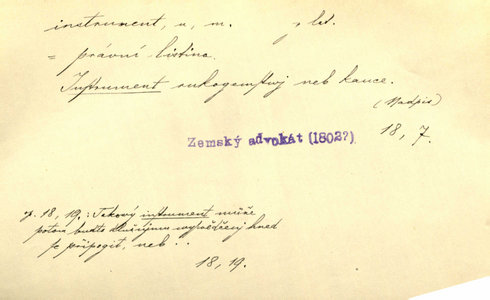 instrument, u, m. z lat.
= právní listina.
Instrument rukogemstwj neb kauce.
(Nadpis)
18, 7.
Zemský advokát (1802?)
sr. 18, 19.: Takowý instrument může
potom budto k hned
se připogit, neb ..
18, 19.